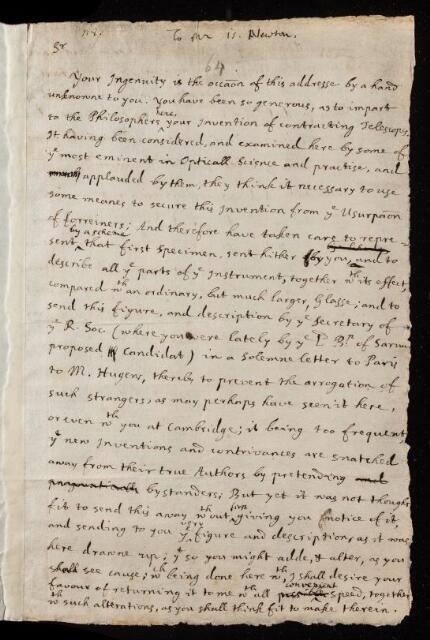 To Mr Is. Newton.
Sr
64.
Your Ingenuity is the occāon of this addresse by a hand
unknowne to you. You have been so generous, as to impart
to the Philosophers here, your Invention of contracting Telescops.
It having been considered, and examined here by some of
ye most eminent in Opticall Science and practise, and
applauded by them, they think it necessary to use
some means to secure this Invention from ye Usurpaōn
of forreiners; And therefore have taken care to repre-
sent by a scheme that first Specimen, sent hither by you, and to
describe all ye parts of ye Instrument, together wth its effect
compared wth an ordinary, but much larger, Glasse; and to
send this figure, and description by ye Secretary of
ye R. Soc. (where you were lately by ye Ld Bp. of Sarum
proposed Candidat) in a Solemne letter to Paris
to M. Hugens, thereby to prevent the arrogation of
such strangers, as may perhaps have seen it here,
or even wth you at Cambridge; it being too frequent,
ye new Inventions and contrivances are snatched
away from their true Authors by pretending
bystanders; But yet it was not thought
fit to send this away wthout first giving you notice of it,
and sending to you ye very figure and description, as it was
here drawne up; yt so you might adde, & alter, as you
shall see cause; wch being done here wth, I shall desire your
favour of returning it to me wth all convenient speed, together
wth such alterations, as you shall think fit to make therein.